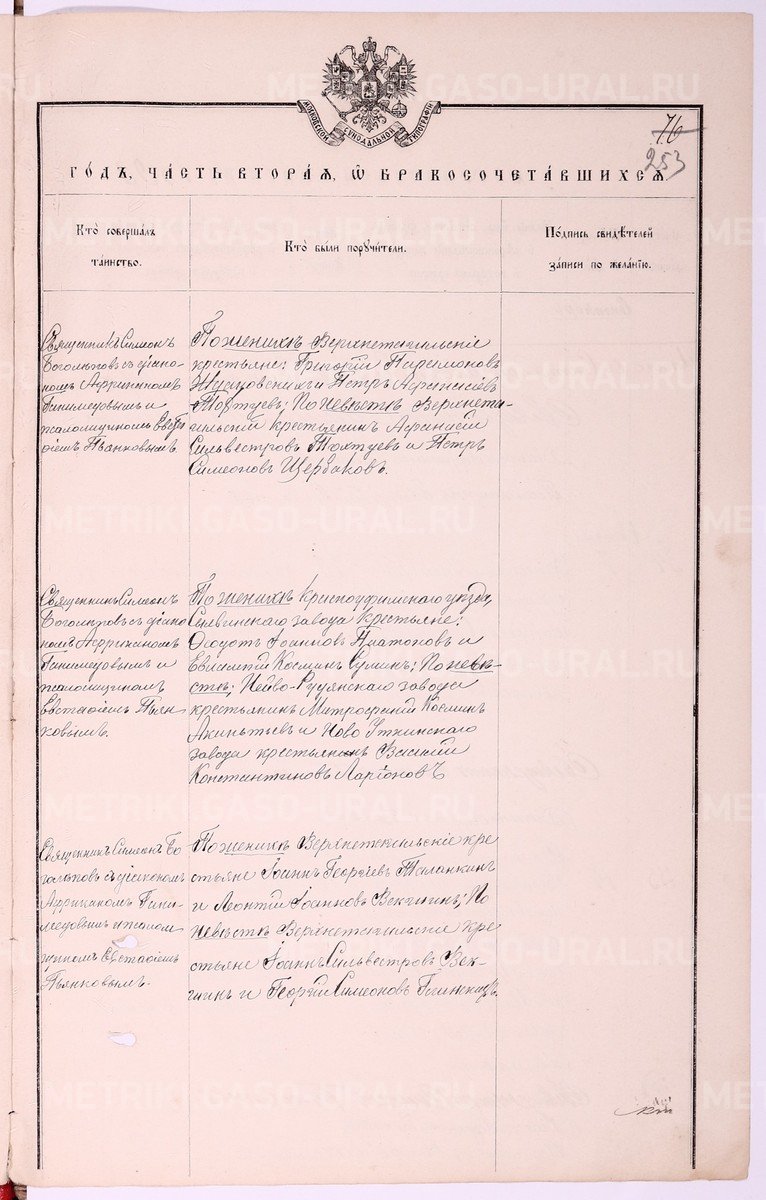 МОСКОВСКОЙ СѴНОДАЛЬНОЙ ТИПОГРАФІИ
76
253
ГОДЪ, ЧАСТЬ ВТОРАЯ, Ѡ БРАКОСОЧЕТАВШИХСЯ.
Кто совершалъ
таинство.
Кто были поручители.
Подпись свидѣтелей
записи по желанію.
Священникъ Симеонъ
Боголѣповъ съ діако-
номъ Африканомъ
Ганимедовымъ и
псаломщикомъ Евста-
фіемъ Пьянковымъ.
По женихѣ Верхнетагильскіе
крестьяне: Григорій Парѳеновъ
и Петръ Аѳанасіевъ
Тохтуевъ; По невѣстѣ Верхнета-
гильскій крестьянинъ Аѳанасій
Сильвестровъ Тохтуевъ и Петръ
Симеоновъ Щербаковъ.
Священникъ Симеонъ
Боголѣповъ съ діако-
номъ Африканомъ
Ганимедовымъ и
псаломщикомъ
Евстафіемъ Пьян-
ковымъ.
По женихѣ Красноуфимскаго уѣзда,
Сылвинскаго завода крестьяне:
Ѳедотъ Іоанновъ Платоновъ и
Евлампій Косминъ; По невѣ-
стѣ; Нейво-Рудянскаго завода
крестьянинъ Митрофаній Косминъ
Акинтьевъ и Ново Уткинскаго
завода крестьянинъ Василій
Константиновъ Ларіоновъ
Священникъ Симеонъ Бо-
голѣповъ съ діакономъ
Африканомъ Гани-
медовымъ и псалом-
щикомъ Евстафіемъ
Пьянковымъ.
По женихѣ Верхнетагильскіе кре
стьяне Іоаннъ Георгіевъ Таланкинъ
и Леонтій Іоанновъ Векшинъ; По
невѣстѣ Верхнетагильскіе кре
стьяне Іоаннъ Сильвестровъ Век-
шинъ и Георгій Симеоновъ
METRIKI.GASO-URAL.RU